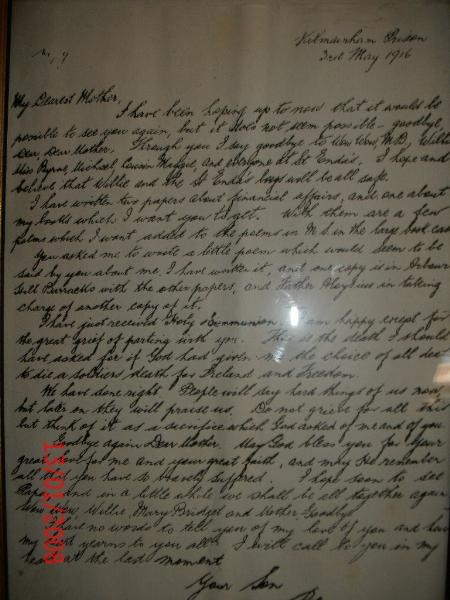 Kilmainham Prison
3rd May 1916
My Dearest Mother,
I have been hoping up to now that it would be
possible to see you again, but it does not seem possible - goodbye,
Dear, Dear Mother. Through you I say goodbye to Wow Wow, M.B, Willie
Miss Byrne, Michael, Cousin Maggie, and everyone at St Enda's. I hope and
believe that Willie and the St Enda's boys will be all safe.
I have written two papers about financial affairs, and one about
my books which I want you to get. With them are a few
poems which I want added to the poems in M.S. in the large book case
You asked me to write a little poem which would seem to be
said by you about me. I have written it, and one copy is in Arbour
Hill Barracks with the other papers, and Father Aloysius is taking
charge of another copy of it.
I have just received Holy Communion. I am happy except for
the great grief of parting with you. This is the death I should
have asked for if God had given me the choice of all deaths
to die a soldiers death for Ireland and Freedom.
We have done right. People will say hard things of us now,
but later on they will praise us. Do not grieve for all this
but think of it as a sacrifice which God asked of me and of you
Goodbye again, Dear Mother. May God bless you for your
great love for me and your great faith, and may He remember
all that you have so bravely suffered. I hope soon to see
Papa, and in a little while we shall be all together again
Wow Wow, Willie, Mary Bridget and Mother Goodbye
I have no words to tell you of my love of you and how
my heart yearns to you all. I will call to you in my
heart at the last moment
Your Son